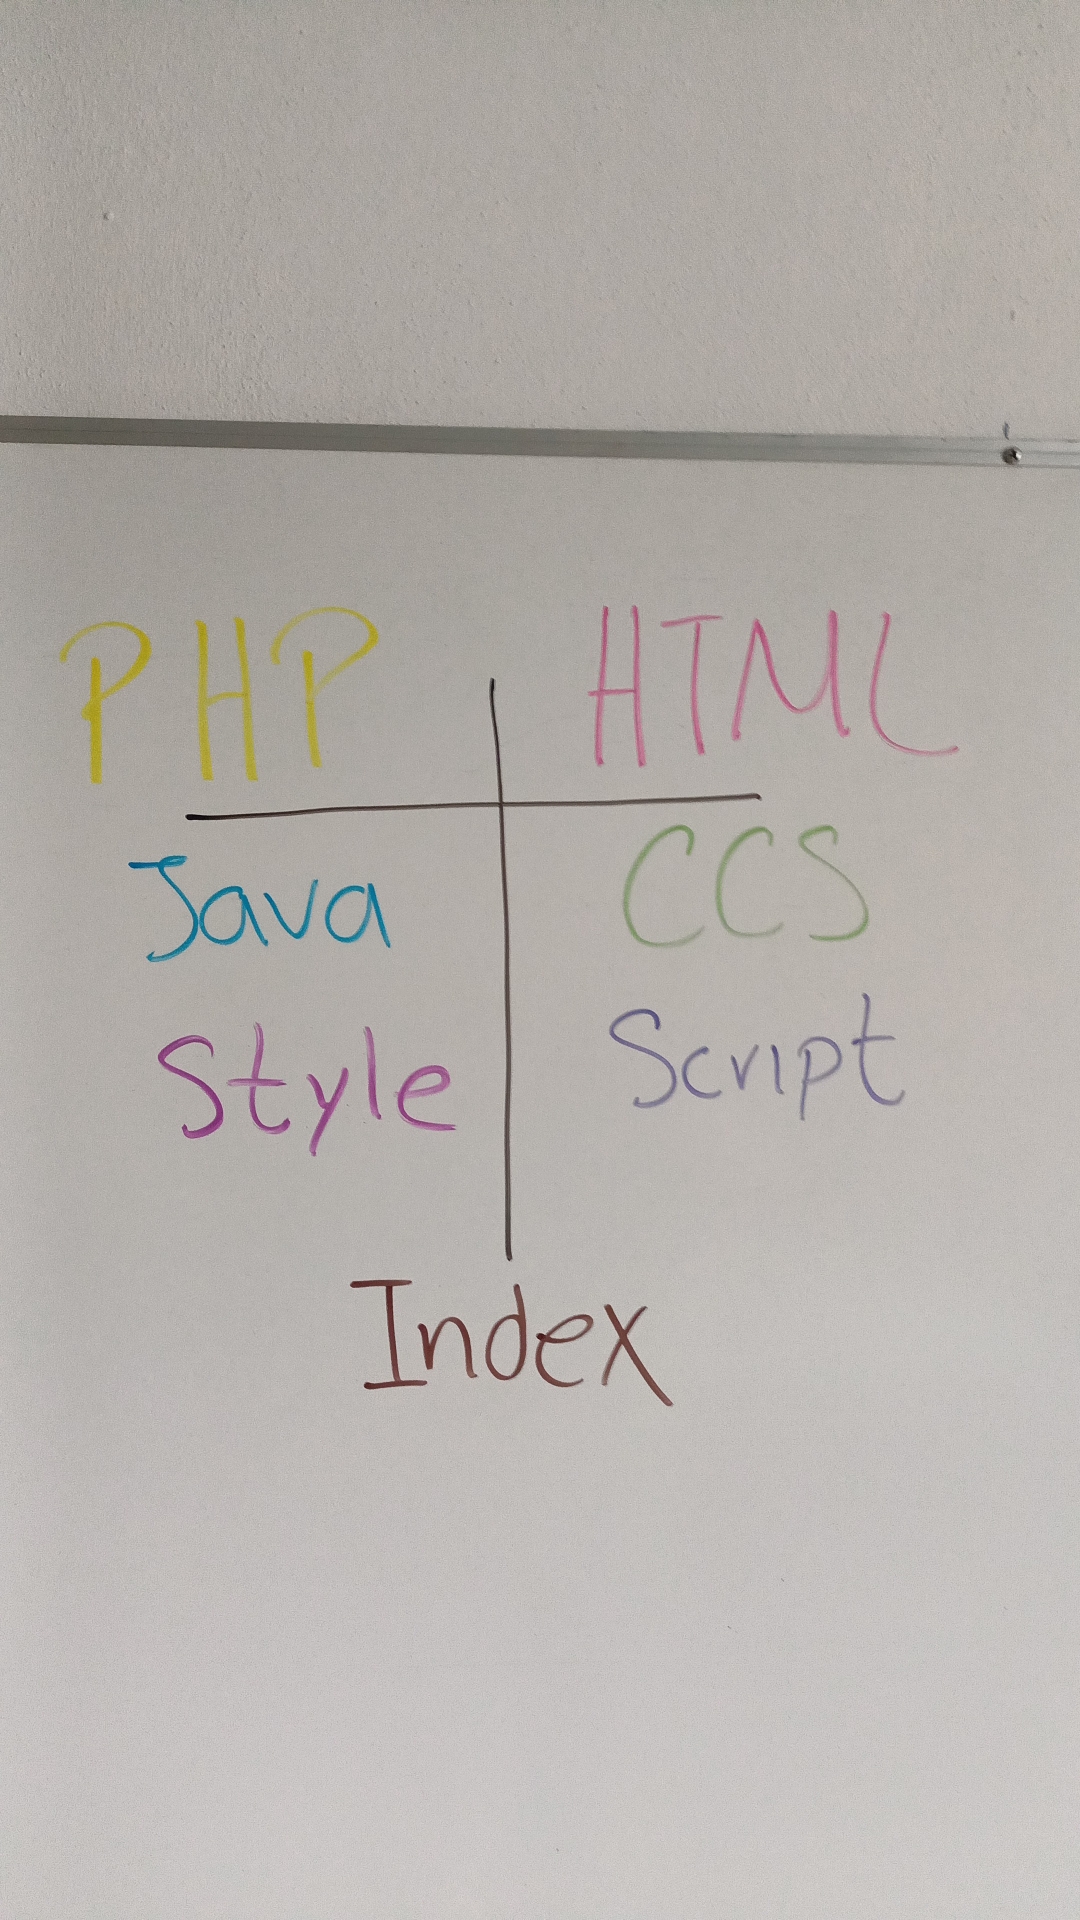 PHP HTML
Java CCS
Style Script
Index